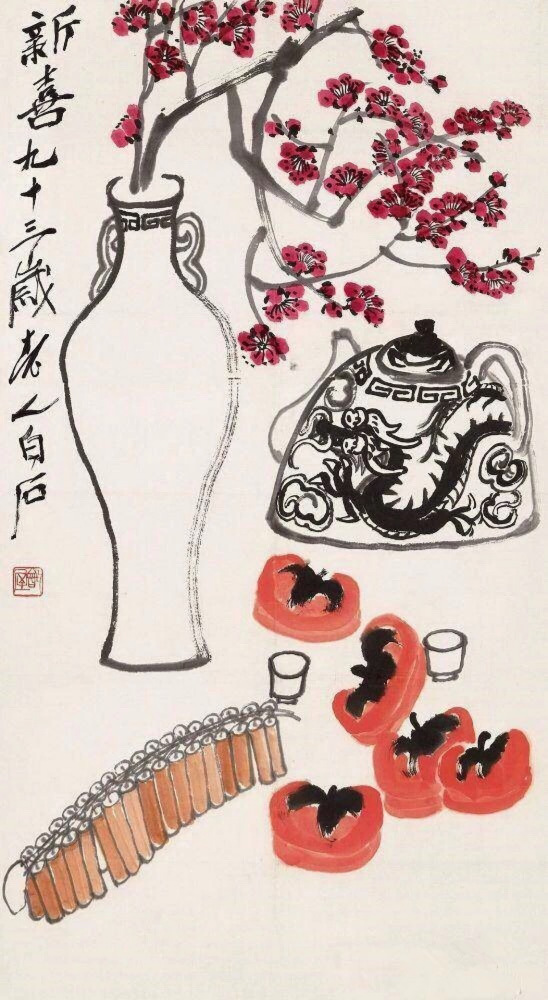 新喜九十三岁老人白石